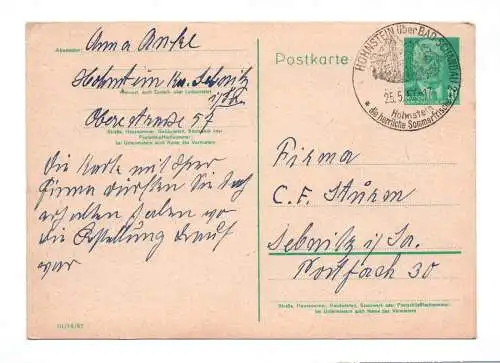 Absender: Anna Anke
Hohnstein Kr. Sebnitz
Wohnort, auch Zustell- oder Leitpostamt
i/Sa.
Obere straße 57
Straße, Hausnummer, Gebäudeteil, Stockwerk oder
Postschließfachnummer;
bei Untermietern auch Name des Vermieters
Die Karte mit
Firma dürften Sie doch
erhalten haben wo
die Bestellung drauf
war
III/18/97
Postkarte
HOHNSTEIN über BAD SCHANDAU
25.5.
Hohnstein
* die herrliche Sommerfrische
Firma
C. F. Stürm
Sebnitz i/Sa.
Postfach 30
Straße, Hausnummer, Gebäudeteil, Stockwerk oder Postschließfachnummer;
bei Untermietern auch Name des Vermieters